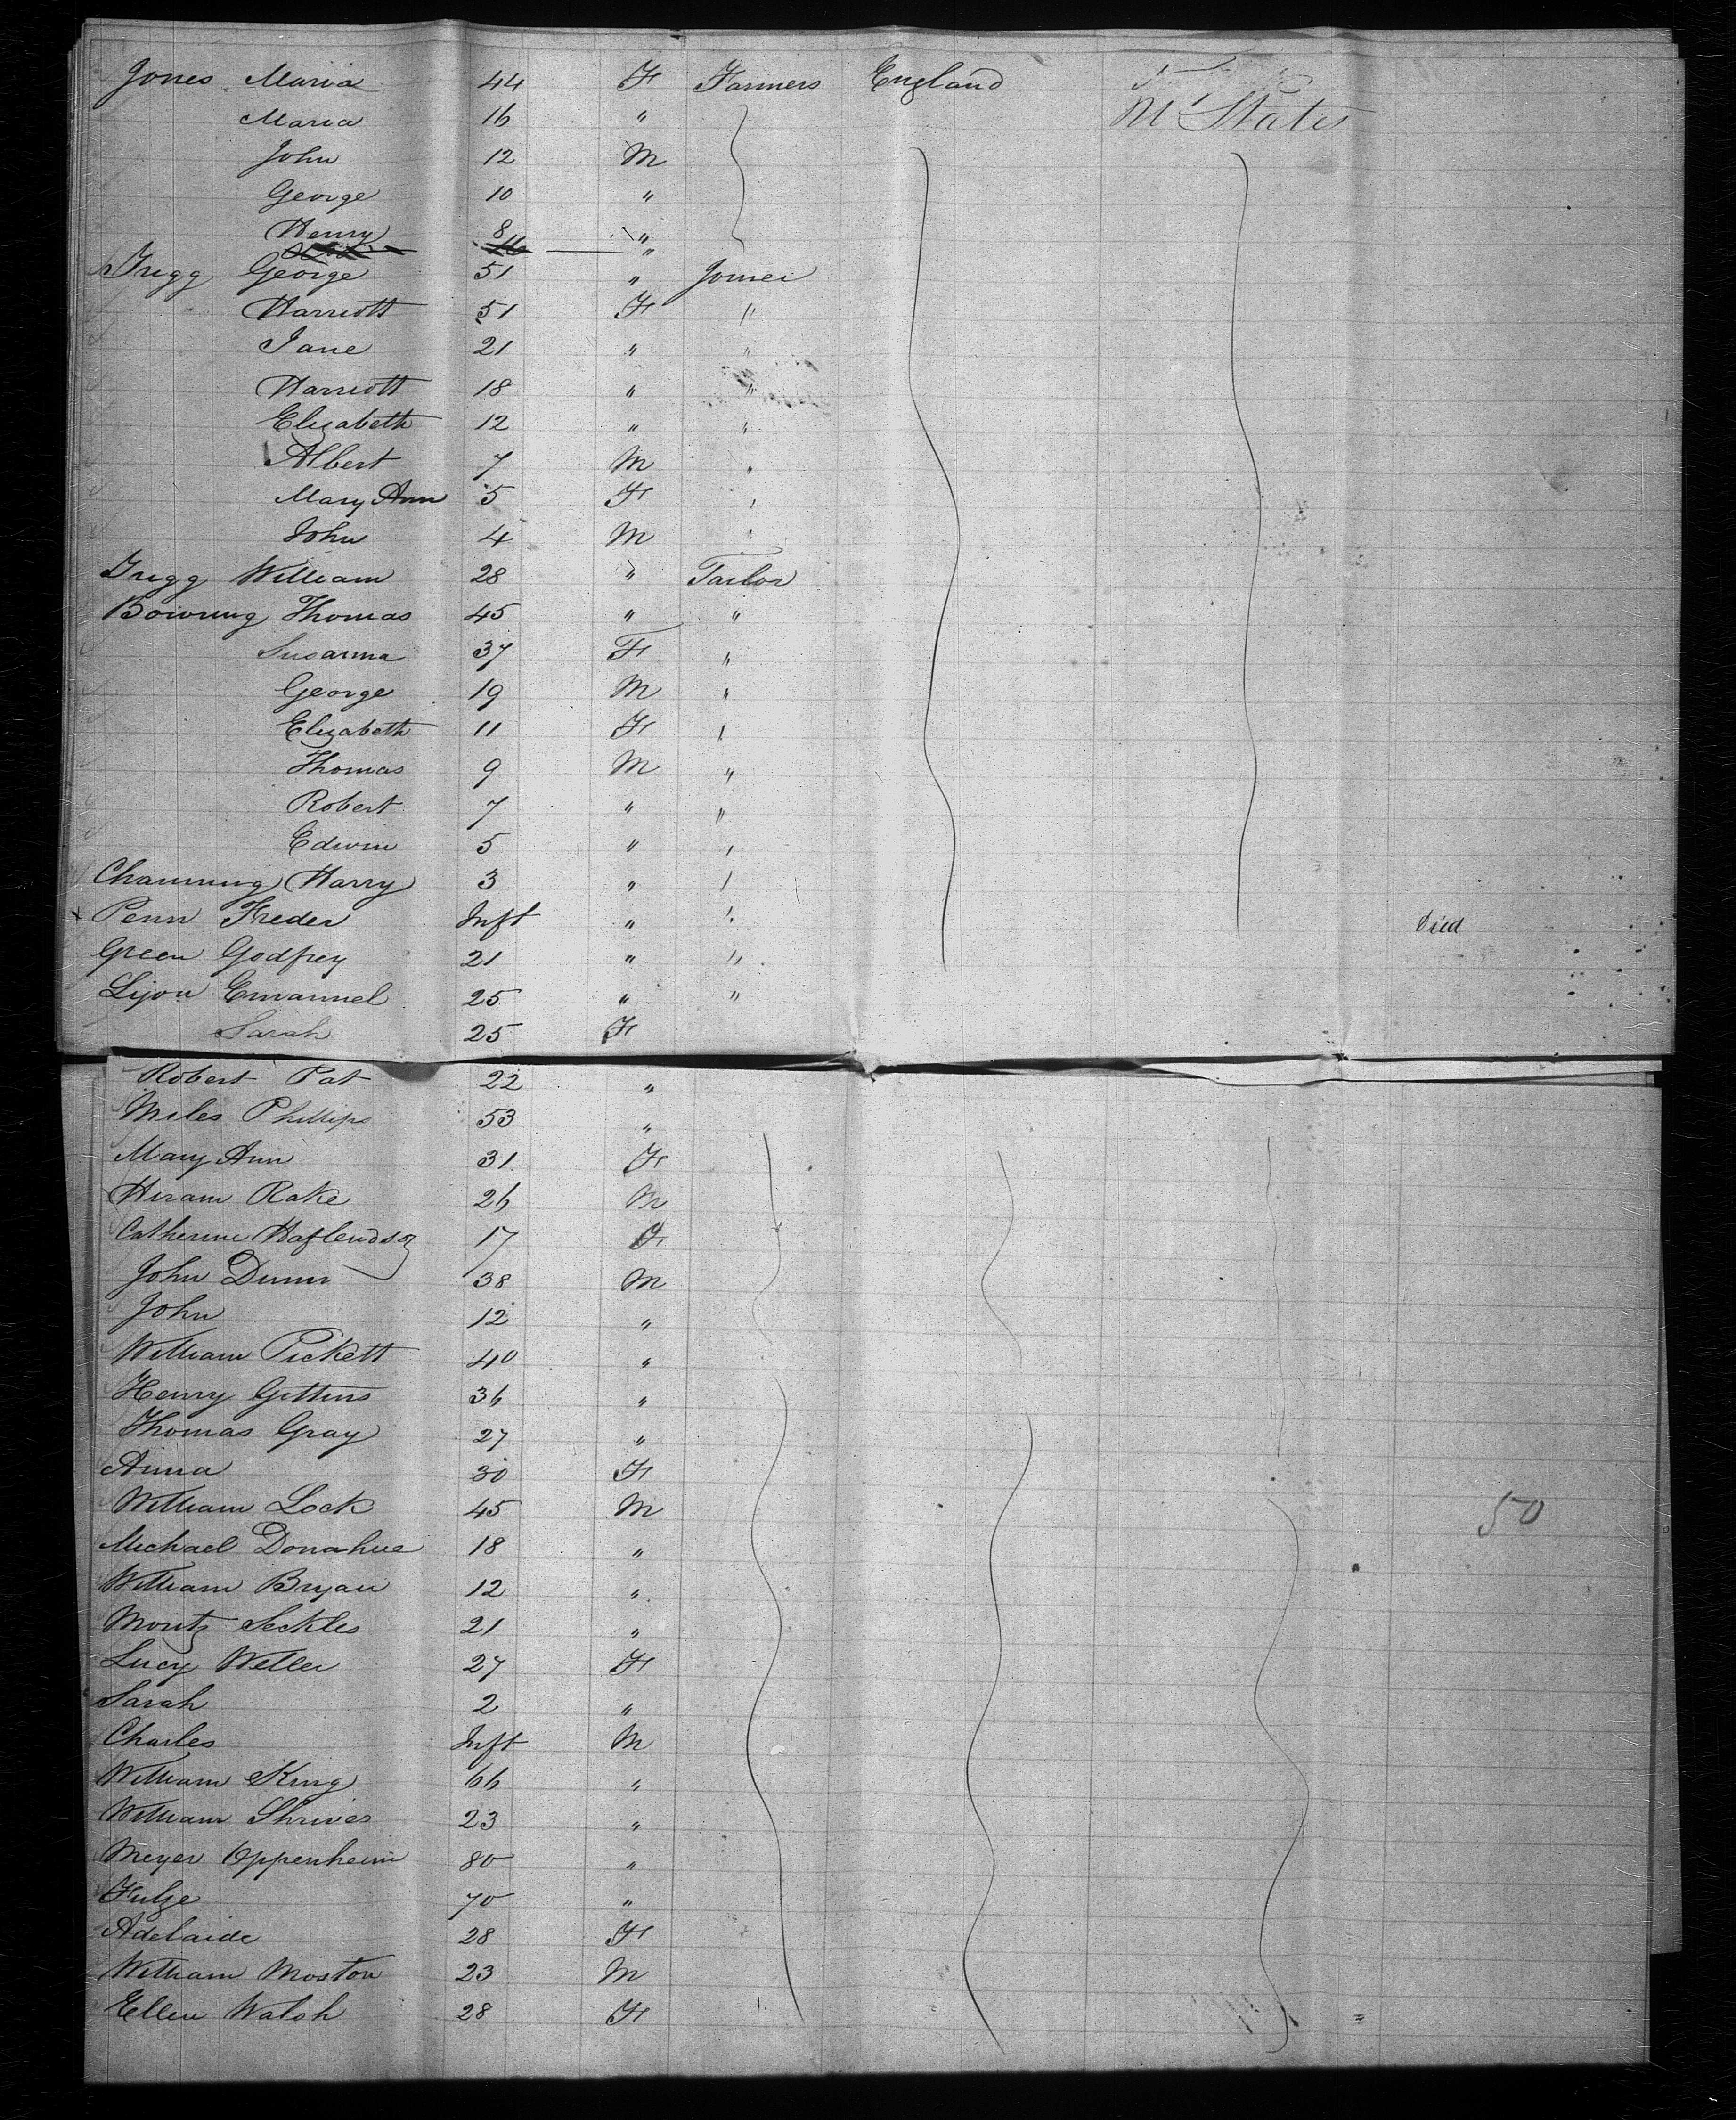 Jones Maria 44 F Farmers England
Maria 16 " M States
John 12 M
George 10 "
Henry 8 "
16 "
Trigg George 51 " Joiner
Harriott 51 F "
Jane 21 " "
Harriott 18 " "
Elizabeth 12 " "
Albert 7 M "
Mary Ann 5 F "
John 4 M "
Trigg William 28 " Tailor
Bowring Thomas 45 " "
Susanna 37 F "
George 19 M "
Elizabeth 11 F "
Thomas 9 M "
Robert 7 " "
Edwin 5 " "
Channing Harry 3 " "
Penn Freder Inft " " Died
Green Godfrey 21 " "
Lyon Emannel 25 " "
Sarah 25 F
Robert Pat 22 "
Miles Phillips 53 "
Mary Ann 31 F
Hiram Rake 26 M
Catherine 17 F
John Dunn 38 M
John 12 "
William Pickett 40 "
Henry Gittins 36 "
Thomas Gray 27 "
Anna 30 F
William Lock 45 M 50
Michael Donahue 18 "
William Bryan 12 "
Moritz Seckles 21 "
Lucy Weller 27 F
Sarah 2 "
Charles Inft M
William King 66 "
William Shrives 23 "
Meyer Oppenheim 80 "
70 "
Adelaide 28 F
William Moston 23 M
Ellen Walsh 28 F